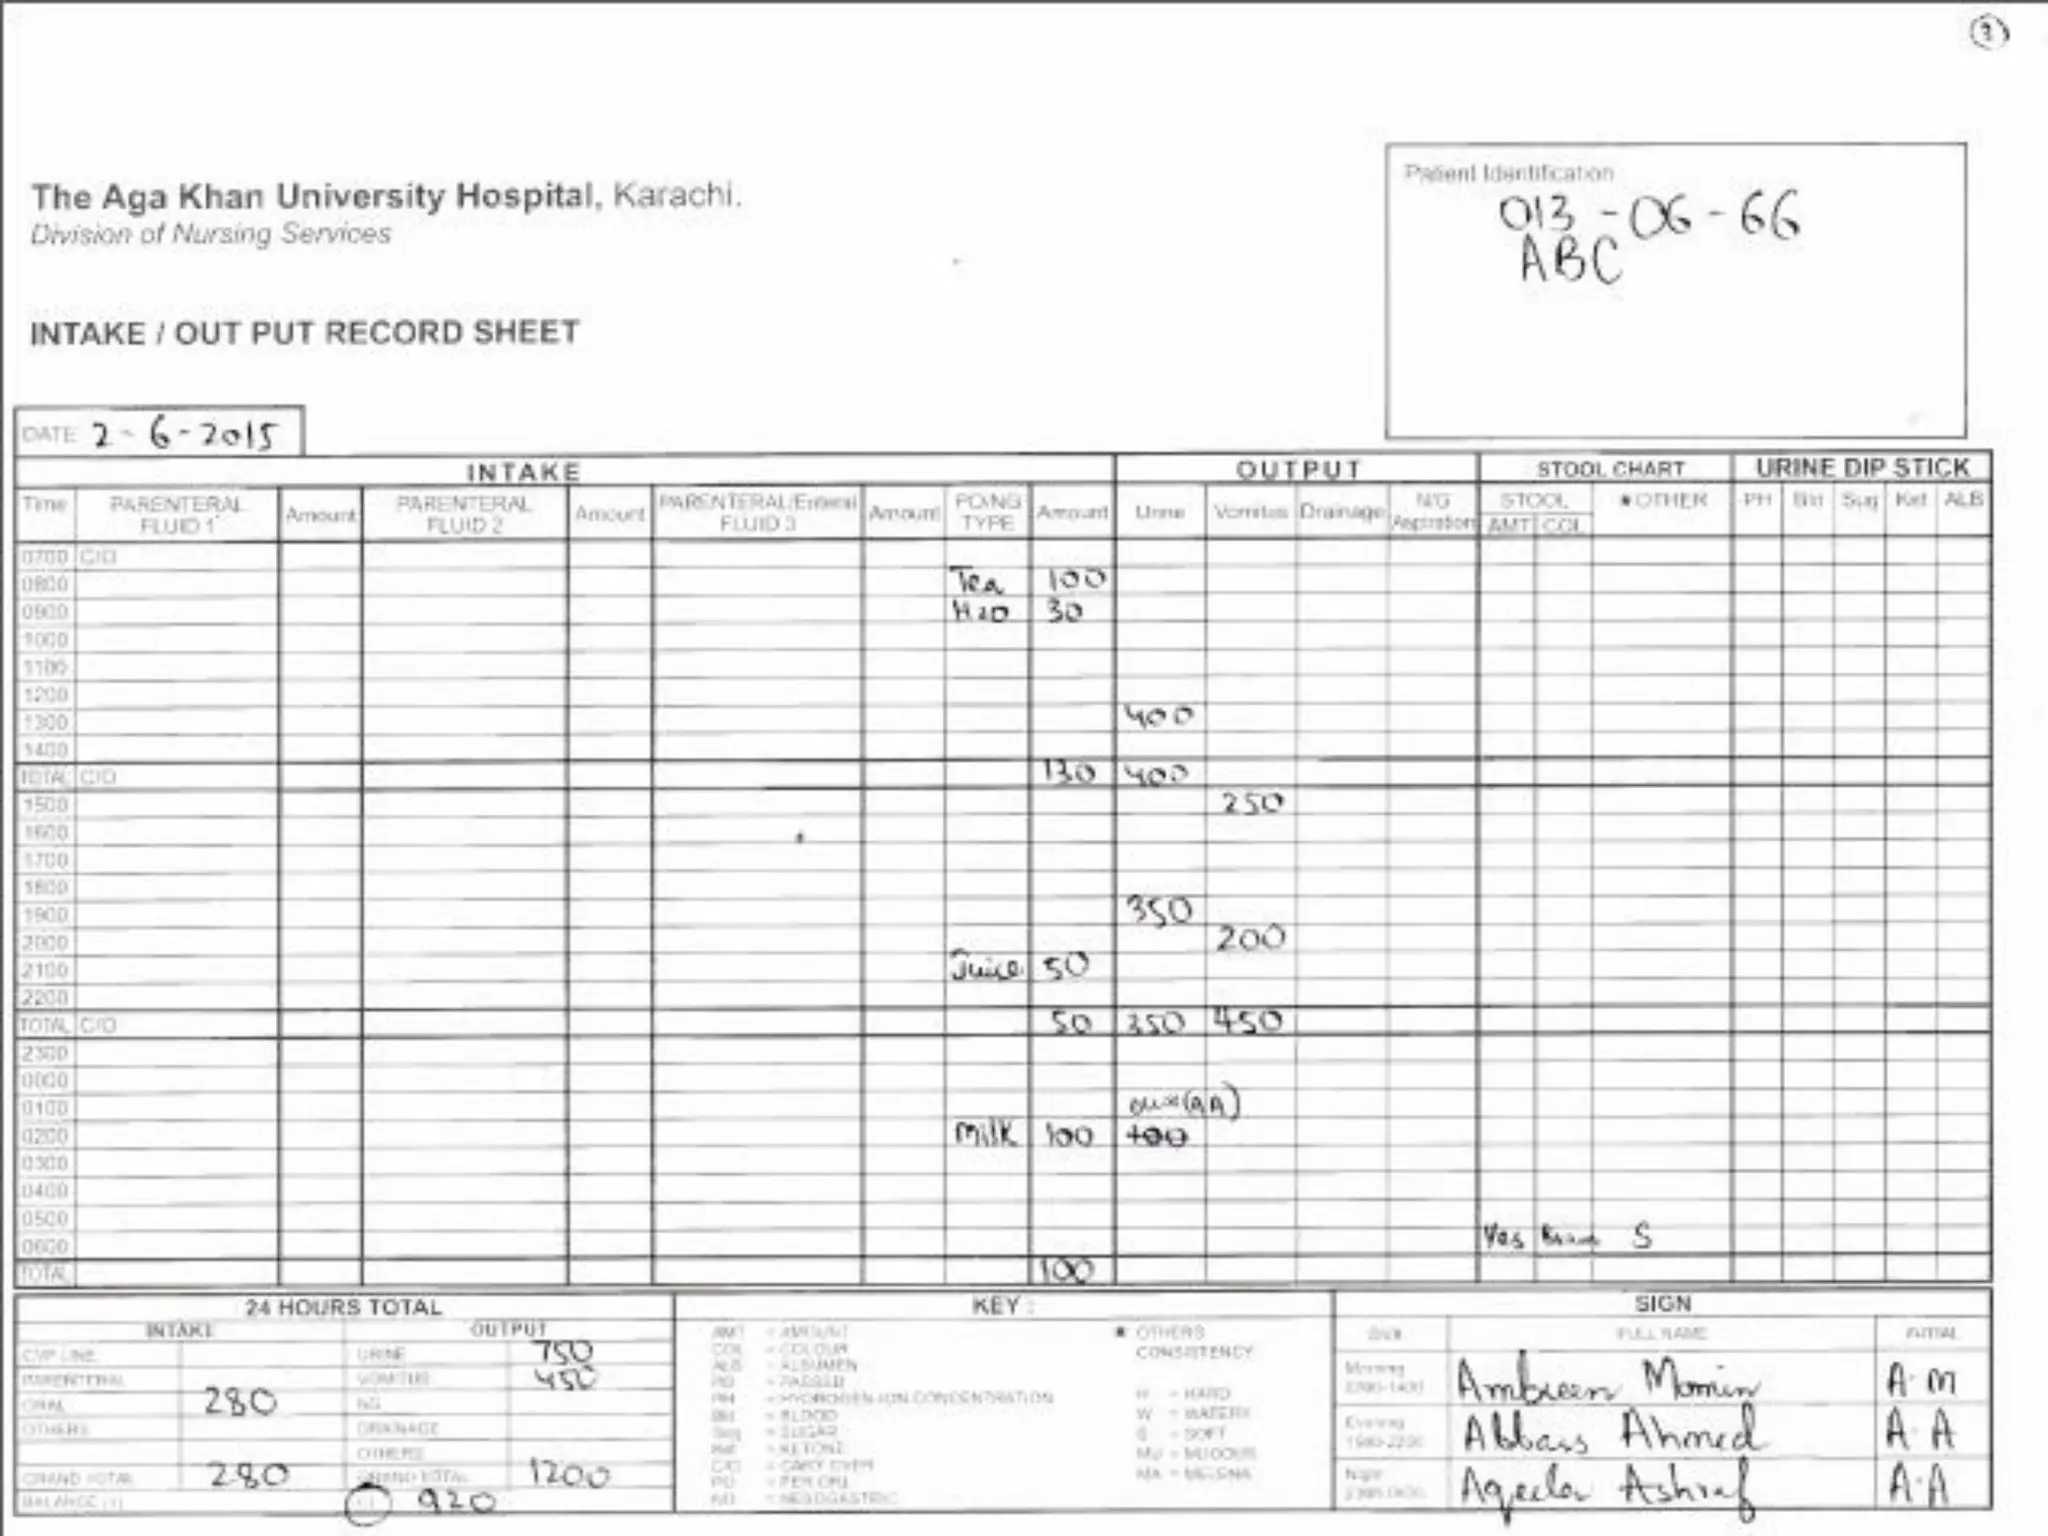 3
The Aga Khan University Hospital, Karachi.
Division of Nursing Services
INTAKE / OUT PUT RECORD SHEET
Patient Identification
013-06-66
ABC
DATE 2-6-2015
INTAKE OUTPUT STOOL CHART URINE DIP STICK
Time PARENTERAL FLUID 1 Amount PARENTERAL FLUID 2 Amount PARENTERAL/Enteral FLUID 3 Amount PO/NG TYPE Amount Urine Vomitus Drainage N/G Aspiration STOOL AMT COL *OTHER PH Bld Sug Ket ALB
0700 C/O
0800 Tea 100
0900 H2O 30
1000
1100
1200
1300 400
1400
TOTAL C/O 130 400
1500 250
1600
1700
1800
1900 350
2000 200
2100 Juice 50
2200
TOTAL C/O 50 350 450
2300
0000
0100 (AA)
0200 Milk 100 400
0300
0400
0500
0600 Yes S
TOTAL 100
24 HOURS TOTAL
INTAKE OUTPUT
CVP LINE URINE 750
PARENTERAL VOMITUS 450
ORAL 280 NG
OTHERS DRAINAGE
OTHERS
GRAND TOTAL 280 GRAND TOTAL 1200
BALANCE (+) (-) 920
KEY :
AMT = AMOUNT
COL = COLOUR
ALB = ALBUMEN
PD = PASSED
PH = HYDROGEN ION CONCENTRATION
Bld = BLOOD
Sug = SUGAR
Ket = KETONE
C/O = CARY OVER
PO = PER ORL
NG = NESOGASTRIC
* OTHERS
CONSISTENCY
H = HARD
W = WATERY
S = SOFT
MU = MUCOUS
MA = MELENA
SIGN
Shift FULL NAME INITIAL
Morning 0700-1400 Ambreen Momin A.M
Evening 1500-2200 Abbass Ahmed A.A
Night 2300-0600 Aqeela Ashraf A.A